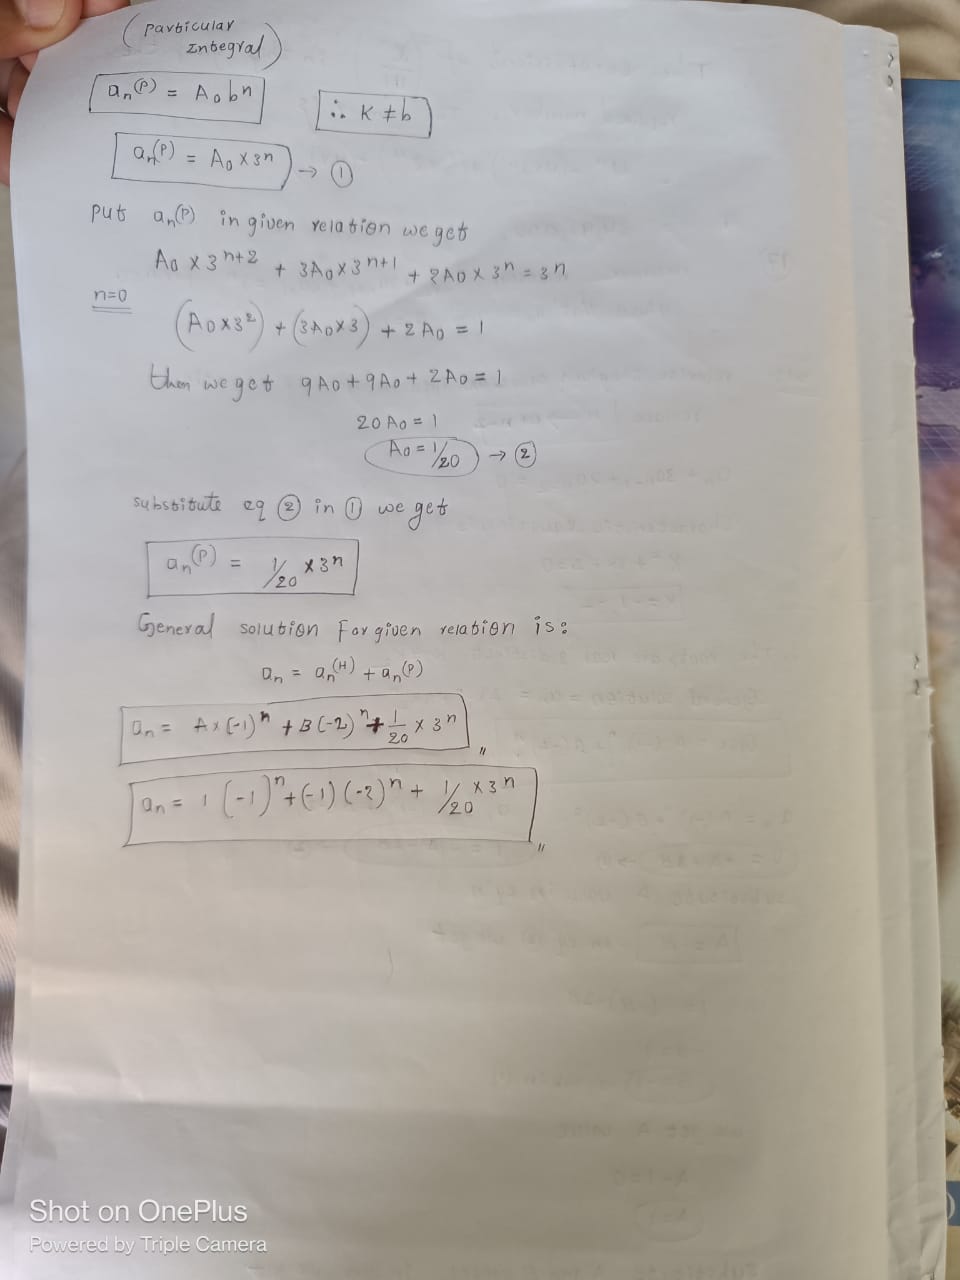 (Particular
Integral)
aₙ⁽ᴾ⁾ = A₀bⁿ
∴ K ≠ b
aₙ⁽ᴾ⁾ = A₀ × 3ⁿ → ①
put aₙ⁽ᴾ⁾ in given relation we get
A₀ × 3ⁿ⁺² + 3A₀ × 3ⁿ⁺¹ + 2A₀ × 3ⁿ = 3ⁿ
n=0
(A₀×3²) + (3A₀×3) + 2A₀ = 1
then we get 9A₀ + 9A₀ + 2A₀ = 1
20A₀ = 1
A₀ = 1/20 → ②
substitute eq ② in ① we get
aₙ⁽ᴾ⁾ = 1/20 × 3ⁿ
General solution For given relation is:
aₙ = aₙ⁽ᴴ⁾ + aₙ⁽ᴾ⁾
aₙ = A×(-1)ⁿ + B(-2)ⁿ + 1/20 × 3ⁿ
aₙ = 1(-1)ⁿ + (-1)(-2)ⁿ + 1/20 × 3ⁿ
Shot on OnePlus
Powered by Triple Camera